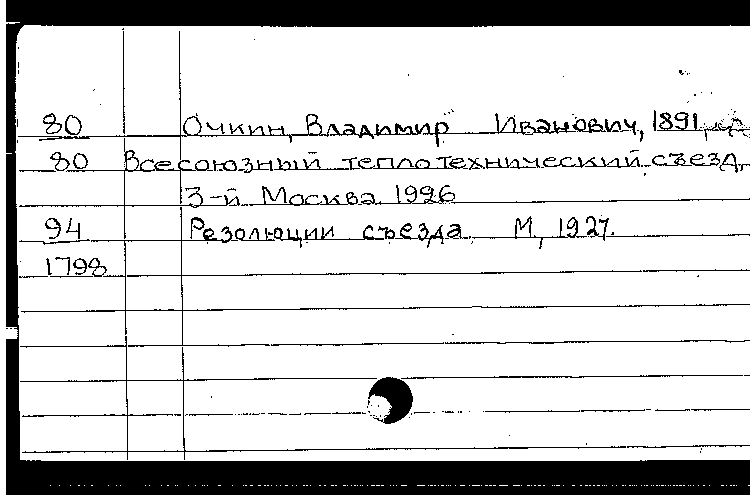 80 Очкин, Владимир Иванович, 1891
80 Всесоюзный теплотехнический съезд,
3-й Москва 1926
94 Резолюции съезда. М, 1927.
1798